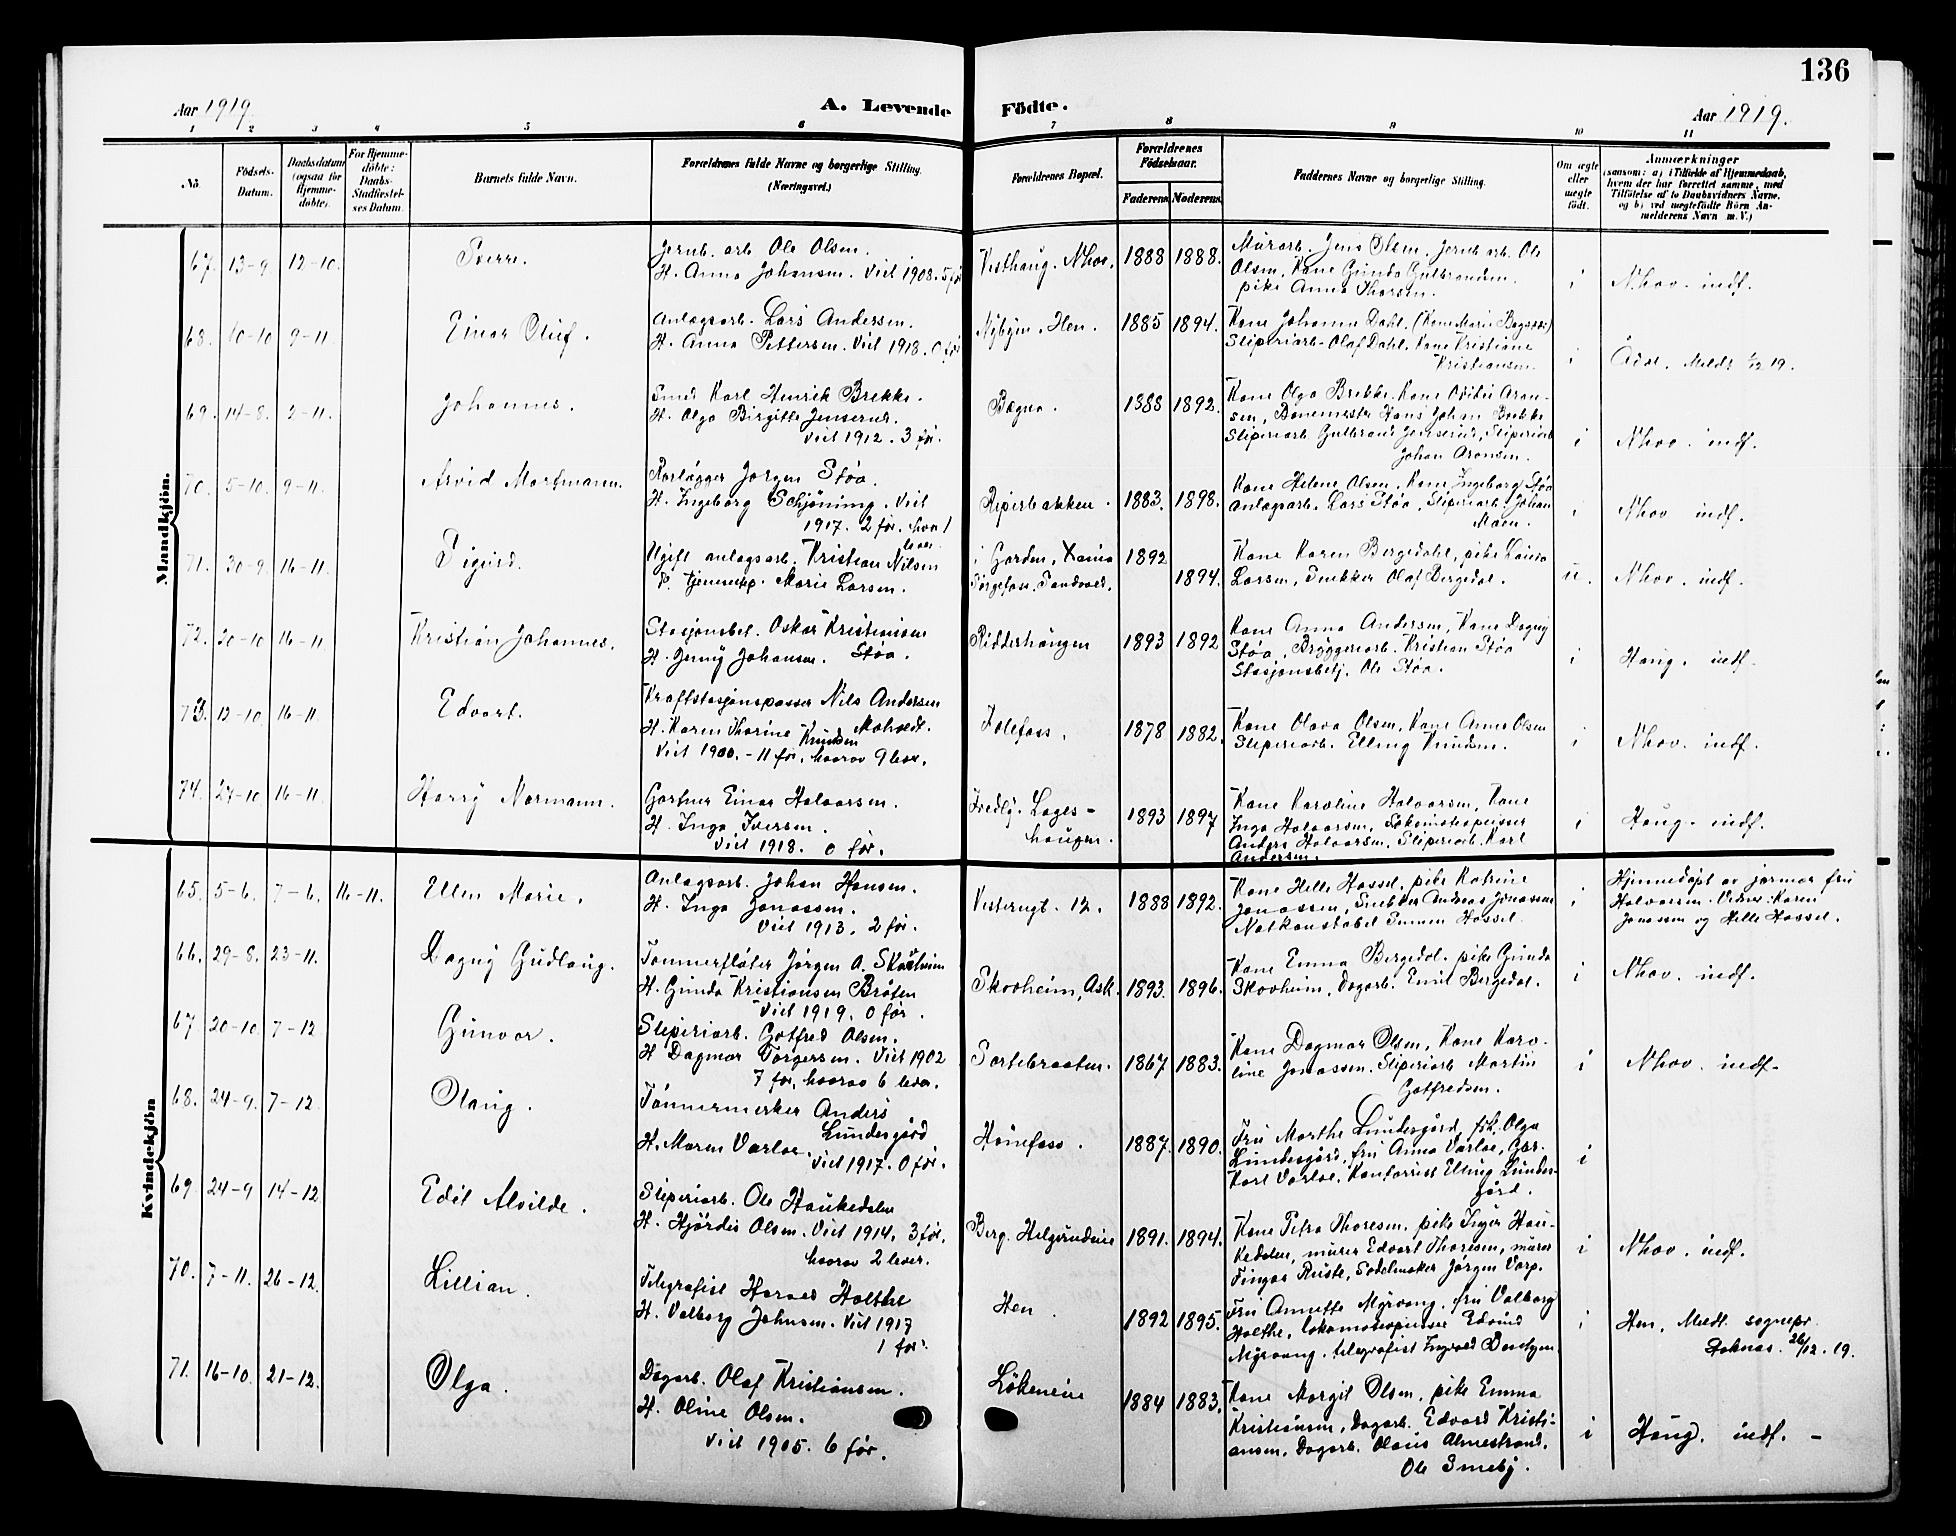 136
Aar 1919. A. Levende Födte. Aar 1919.
1 2 3 4 5 6 7 8 9 10 11
No. Födsels-Datum. Daabsdatum (ogsaa for Hjemme-döbte). For Hjemme-döbte: Daabs-Stadfæstel-ses Datum. Barnets fulde Navn. Forældrenes fulde Navne og borgerlige Stilling. (Næringsvei.) Forældrenes Bopæl. Forældrenes Födselsaar. Faderens Moderens Faddernes Navne og borgerlige Stilling. Om ægte eller uægte födt. Anmærkninger
(saasom: a) i Tilfælde af Hjemmedaab,
hvem der har forrettet samme, med
Tilföielse af to Daabsvidners Navne,
og b) ved uægtefödte Börn An-
melderens Navn m. V.)
Mandkjön.
67. 13-9 12-10. Sverre. Jernb. arb Ole Olsen.
H. Anna Johansen. Viet 1908. 5 för
Vesthaug. Nhov. 1888 1888.
Murarb. Jens Olsen, Jernb arb. Ole
Olsen, Kone Gunda Gulbrandsen.
pike Anna Thorsen.
i Nhov. indf.
68. 10-10 9-11. Einar Oluf. Anlagsarb. Lars Andersen.
H. Anna Pettersen. Viet 1918. 0 för
Nybyen. Hen. 1885 1894.
Kone Johanne Dahl. (Kone Marie
Sliperiarb- Olaf Dahl. Kone Kristiane
Kristiansen.
i Ådal. Meldt 1/12 19.
69. 14-8. 2-11. Johannes. Smed Karl Henrik Brekke.
H. Olga Birgitte Jenserud.
Viet 1912. 3 för.
Bægna. 1888 1892.
Kone Olga Brekke. Kone Aron-
sen, Banemester Hans Johan Brekke
Sliperiarb Gulbrand Jenserud, Sliperiarb
Johan Aronsen.
i Nhov. indf.
70. 5-10. 9-11. Arvid Martmann. Rörlægger Jørgen Støa.
H. Ingeborg Schjøning. Viet
1917. 2 för. hvor 1
lever.
Piperbakken. 1883. 1898.
Kone Helene Olsen, Kone Ingeborg Støa
Anlagsarb. Lars Støa, Sliperiarb. Johan
Moen.
i Nhov indf.
71. 30-9. 16-11. Sigurd. Ugift anlagsarb. Kristian Nilsen
P. tjenestep. Marie Larsen.
i Garden, Xania
Sørgefoss. Sandvold. 1892
1894.
Kone Karen Bergedahl, pike Laura
Larsen, Snekker Olaf Bergedal.
u. Nhov. indf.
72. 20-10 16-11. Kristian Johannes. Stasjonsbet. Oskar Kristiansen
H. Jenny Johansen. Støa.
Ridderhaugen 1893 1892
Kone Anna Andersen, Kone Dagny
Støa, Bryggeriarb. Kristian Støa
Stasjonsbetj. Ole Støa.
i Haug. indf.
73. 12-10. 16-11 Edvart. Kraftstasjonspasser Nils Andersen
H. Karen Thorine Knudsen Moholdt.
Viet 1900. - 11 för, hvorav 9 lever.
Hofsfoss. 1878 1882.
Kone Olava Olsen, Kone Anne Olsen
Sliperiarb. Elling Knudsen.
i Nhov. indf.
74. 27-10. 16-11. Harry Normann. Gartner Einar Halvorsen.
H. Inga Iversen.
Viet 1918. 0 för.
Fredly. Lages-
haugen. 1893 1897
Kone Karoline Halvorsen, Kone
Inga Halvorsen, Lokomotivpusser
Anders Halvorsen, Sliperiarb. Karl
Andersen.
i Haug. indf.
Kvindekjön
65. 5-6. 7-6. 16-11. Ellen Marie. Anlagsarb. Johan Hansen.
H. Inga Jonassen.
Viet 1913. 2 för.
Vesterngt. 12. 1888 1892.
Kone Helle Hassel, pike Katrine
Jonassen, Snekker Andreas Jonassen
Natkonstabel Hassel.
i Hjemmedøpt av jormor fru
Halvorsen. Vidner: Karen
Jonassen og Helle Hassel.
66. 29-8. 23-11. Dagny Gudlaug. Tømmerfløter Jørgen A. Skovheim
H. Gunda Kristiansen Bråten
Viet 1919. 0 för.
Skovheim, Ask. 1893. 1896.
Kone Emma Bergedal. pike Gunda
Skovheim, Dagarb. Emil Bergedal.
i Nhov. indf.
67. 20-10. 7-12 Gunvor. Sliperiarb. Gotfred Olsen.
H Dagmar Torgersen. Viet 1902
7 för, hvorav 6 lever.
Sortebraaten. 1867 1883.
Kone Dagmar Olsen, Kone Karo-
line Jonassen. Sliperiarb Martin
Gotfredsen.
i Nhov. indf.
68. 24-9. 7-12. Olaug. Tømmermerker Anders
Lundesgård
H. Maren Varloe. Viet 1917. 0 för.
Hønefoss. 1887. 1890.
Fru Marthe Lundesgård, frk. Olga
Lundesgård, fru Anna Varloe, Gar.
Karl Varloe, Kontorist Elling Lundes-
gård.
i
69 24-9 14-12. Edit Alvilde. Sliperiarb. Ole Haukedalen
H. Hjördis Olsen. Viet 1914. 3 för.
hvorav 2 lever.
Berg. Helgerudeie 1891. 1894.
Kone Petra Thoresen, pike Inger Hau-
kedalen, murer Edvart Thoresen, murer
Fingar Ruste, Sadelmaker Jørgen Vorp.
i Nhov. indf.
70. 7-11. 26-12. Lillian. Telegrafist Harald Holthe
H. Valborg Johnsen. Viet 1917
1 för.
Hen. 1892 1895.
Fru Annette Myrvang, fru Valborg
Holthe, lokomotivpusser Edvind
Myrvang. telegrafist Ingvald
i Hen, Meldt sognepr.
26/12. 19.
71. 16-10. 21-12. Olga. Dagarb. Olaf Kristiansen.
H. Oline Olsen.
Viet 1905. 6 för.
Løkeneie 1884 1883.
Kone Margit Olsen, pike Emma
Kristiansen, Dagarb. Edvard Kristi-
ansen, Dagarb. Olaus Almestrand,
Ole Smeby.
i Haug. indf. -